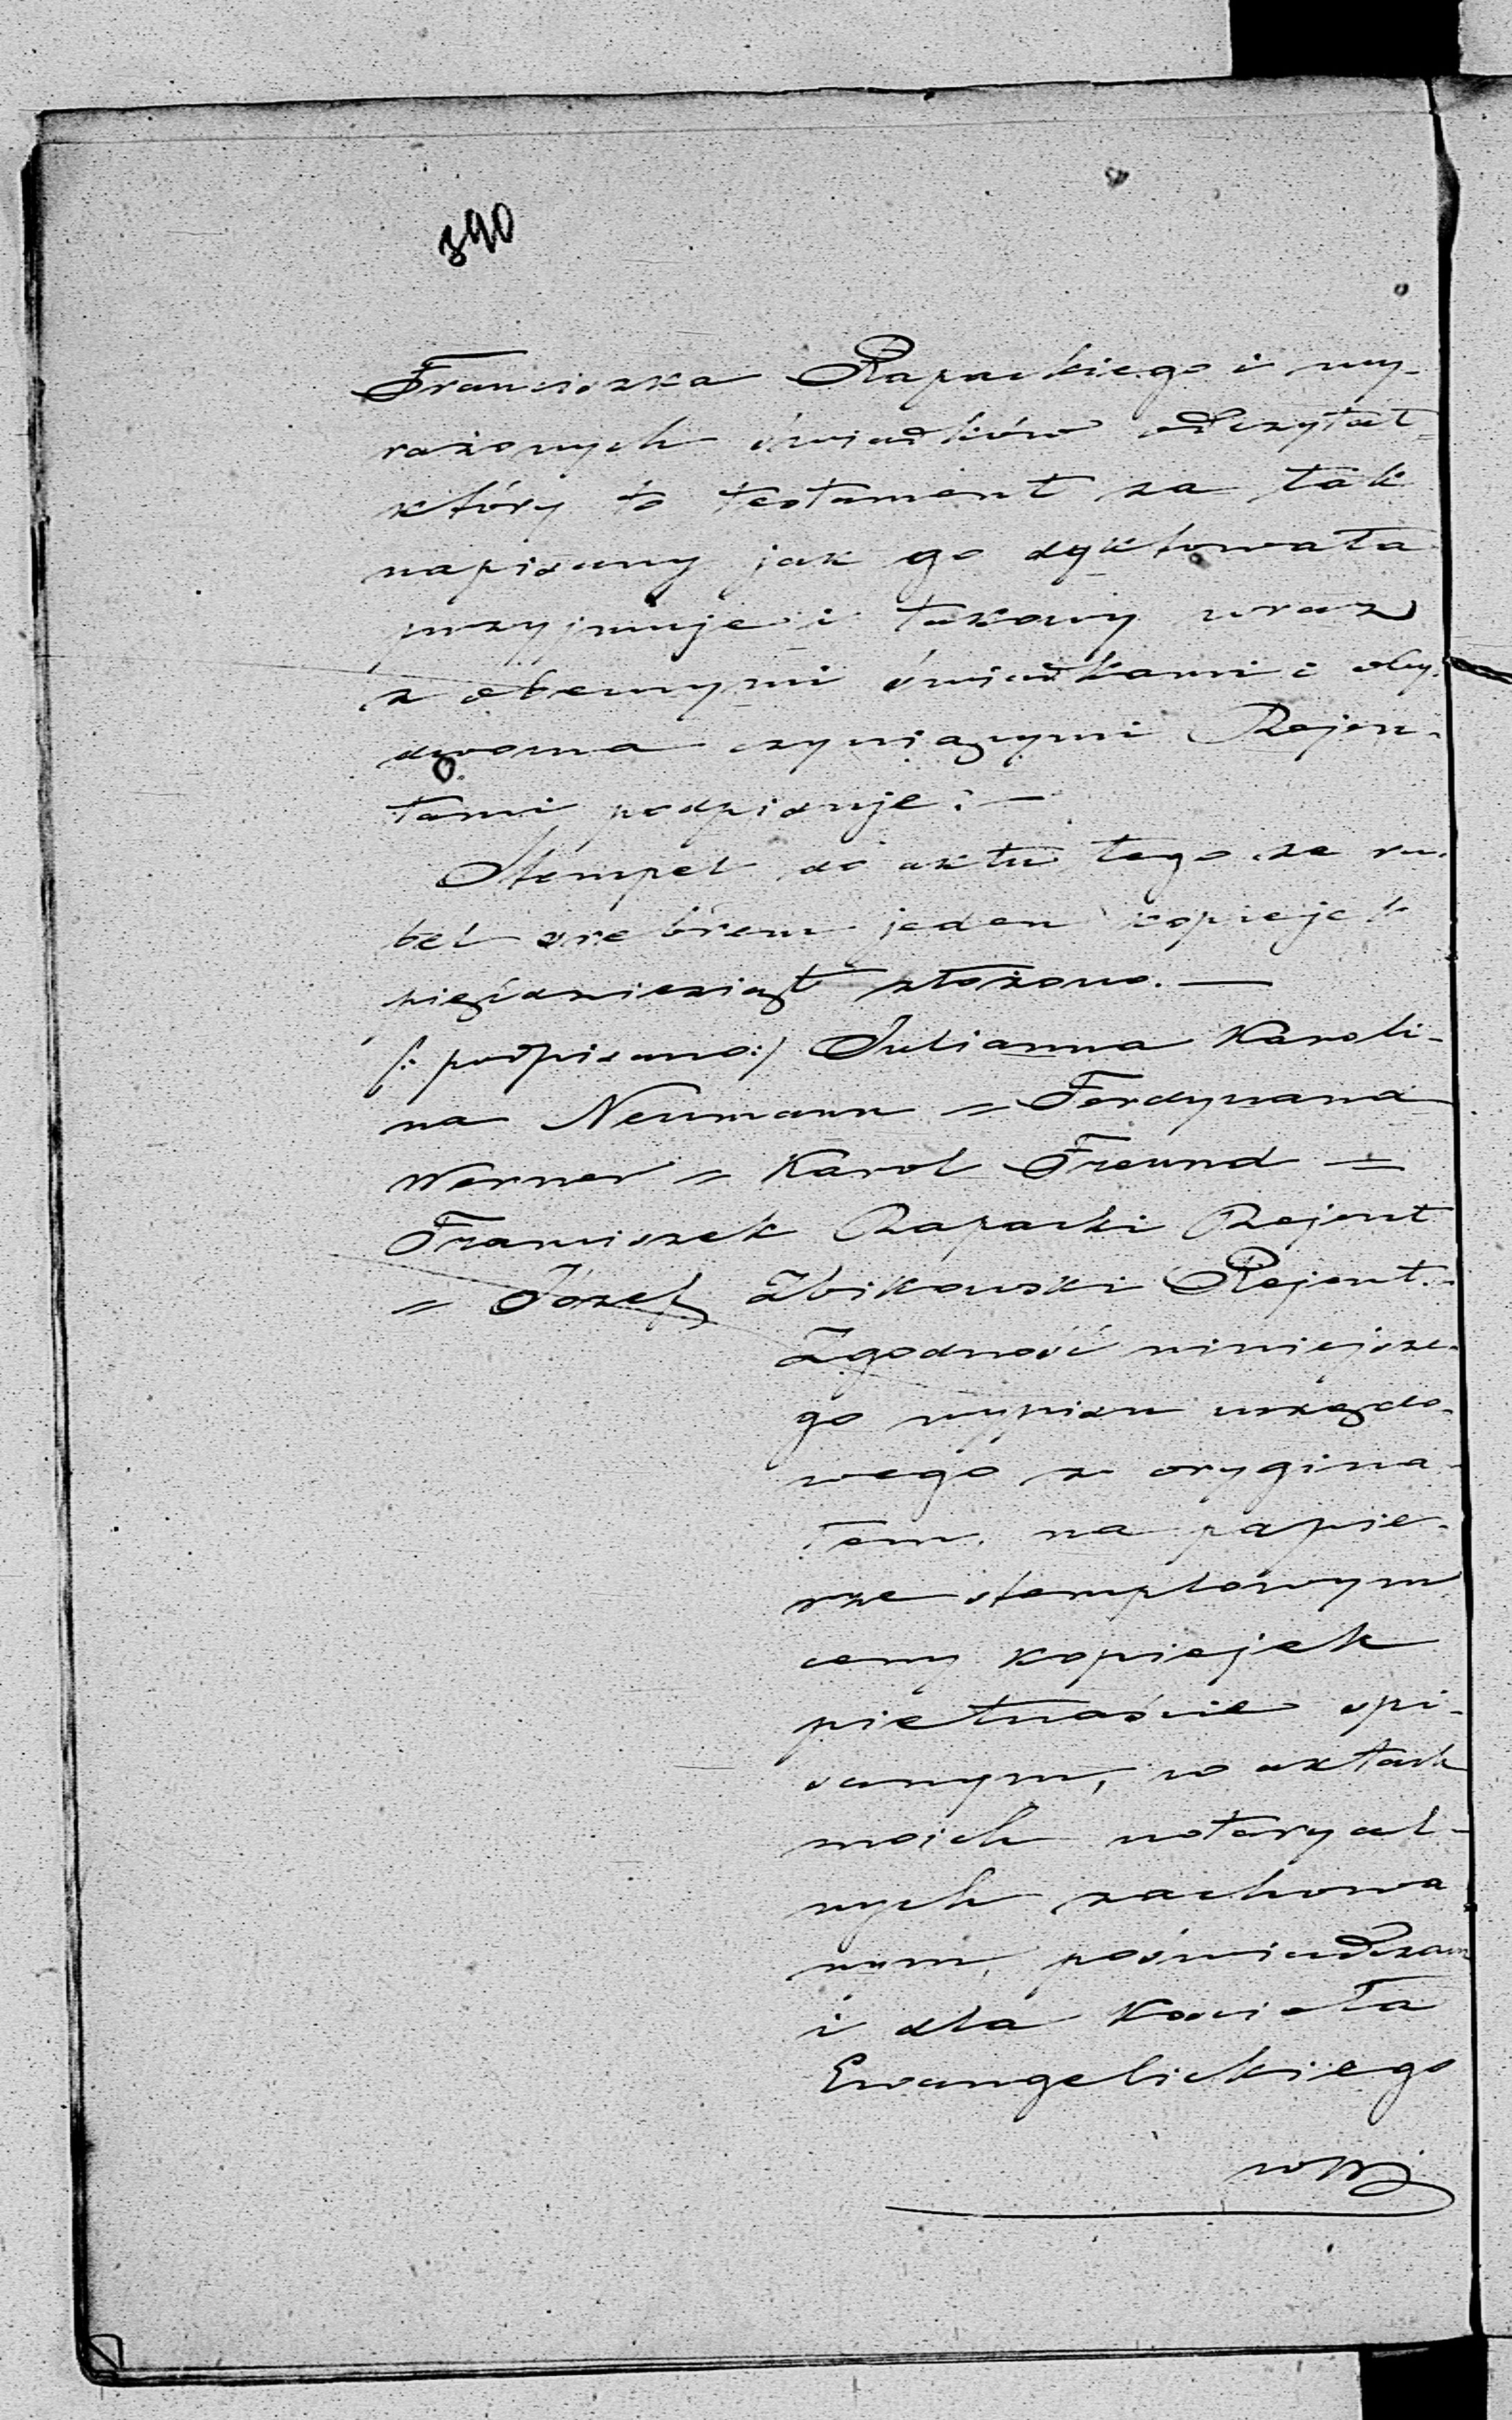 390
Franciszka Rapackiego i wy-
rażonych świadków odczytał-
który to testament za tak
napisany jak go dyktowała
przyjmuje i takowy wraz
z obecnymi świadkami i oby-
dwoma czyniącymi Rejen-
tami podpisuje: —
Stempel do aktu tego za ru-
bel srebrem jeden kopiejek
pięćdziesiąt złożono. —
/: podpisano:/ Julianna Karoli-
na Neumann = Ferdynand
Werner = Karol Freund =
Franciszek Rapacki Rejent
= Józef Zbikowski Rejent. -
Zgodność niniejsze-
go wypisu urzędo-
wego z orygina-
łem, na papie-
rze stemplowym
ceny kopiejek
pietnaście spi-
sanym, w aktach
moich notaryal-
nych zachowa
nym, poświadczam
i dla Kościoła
Ewangelickiego